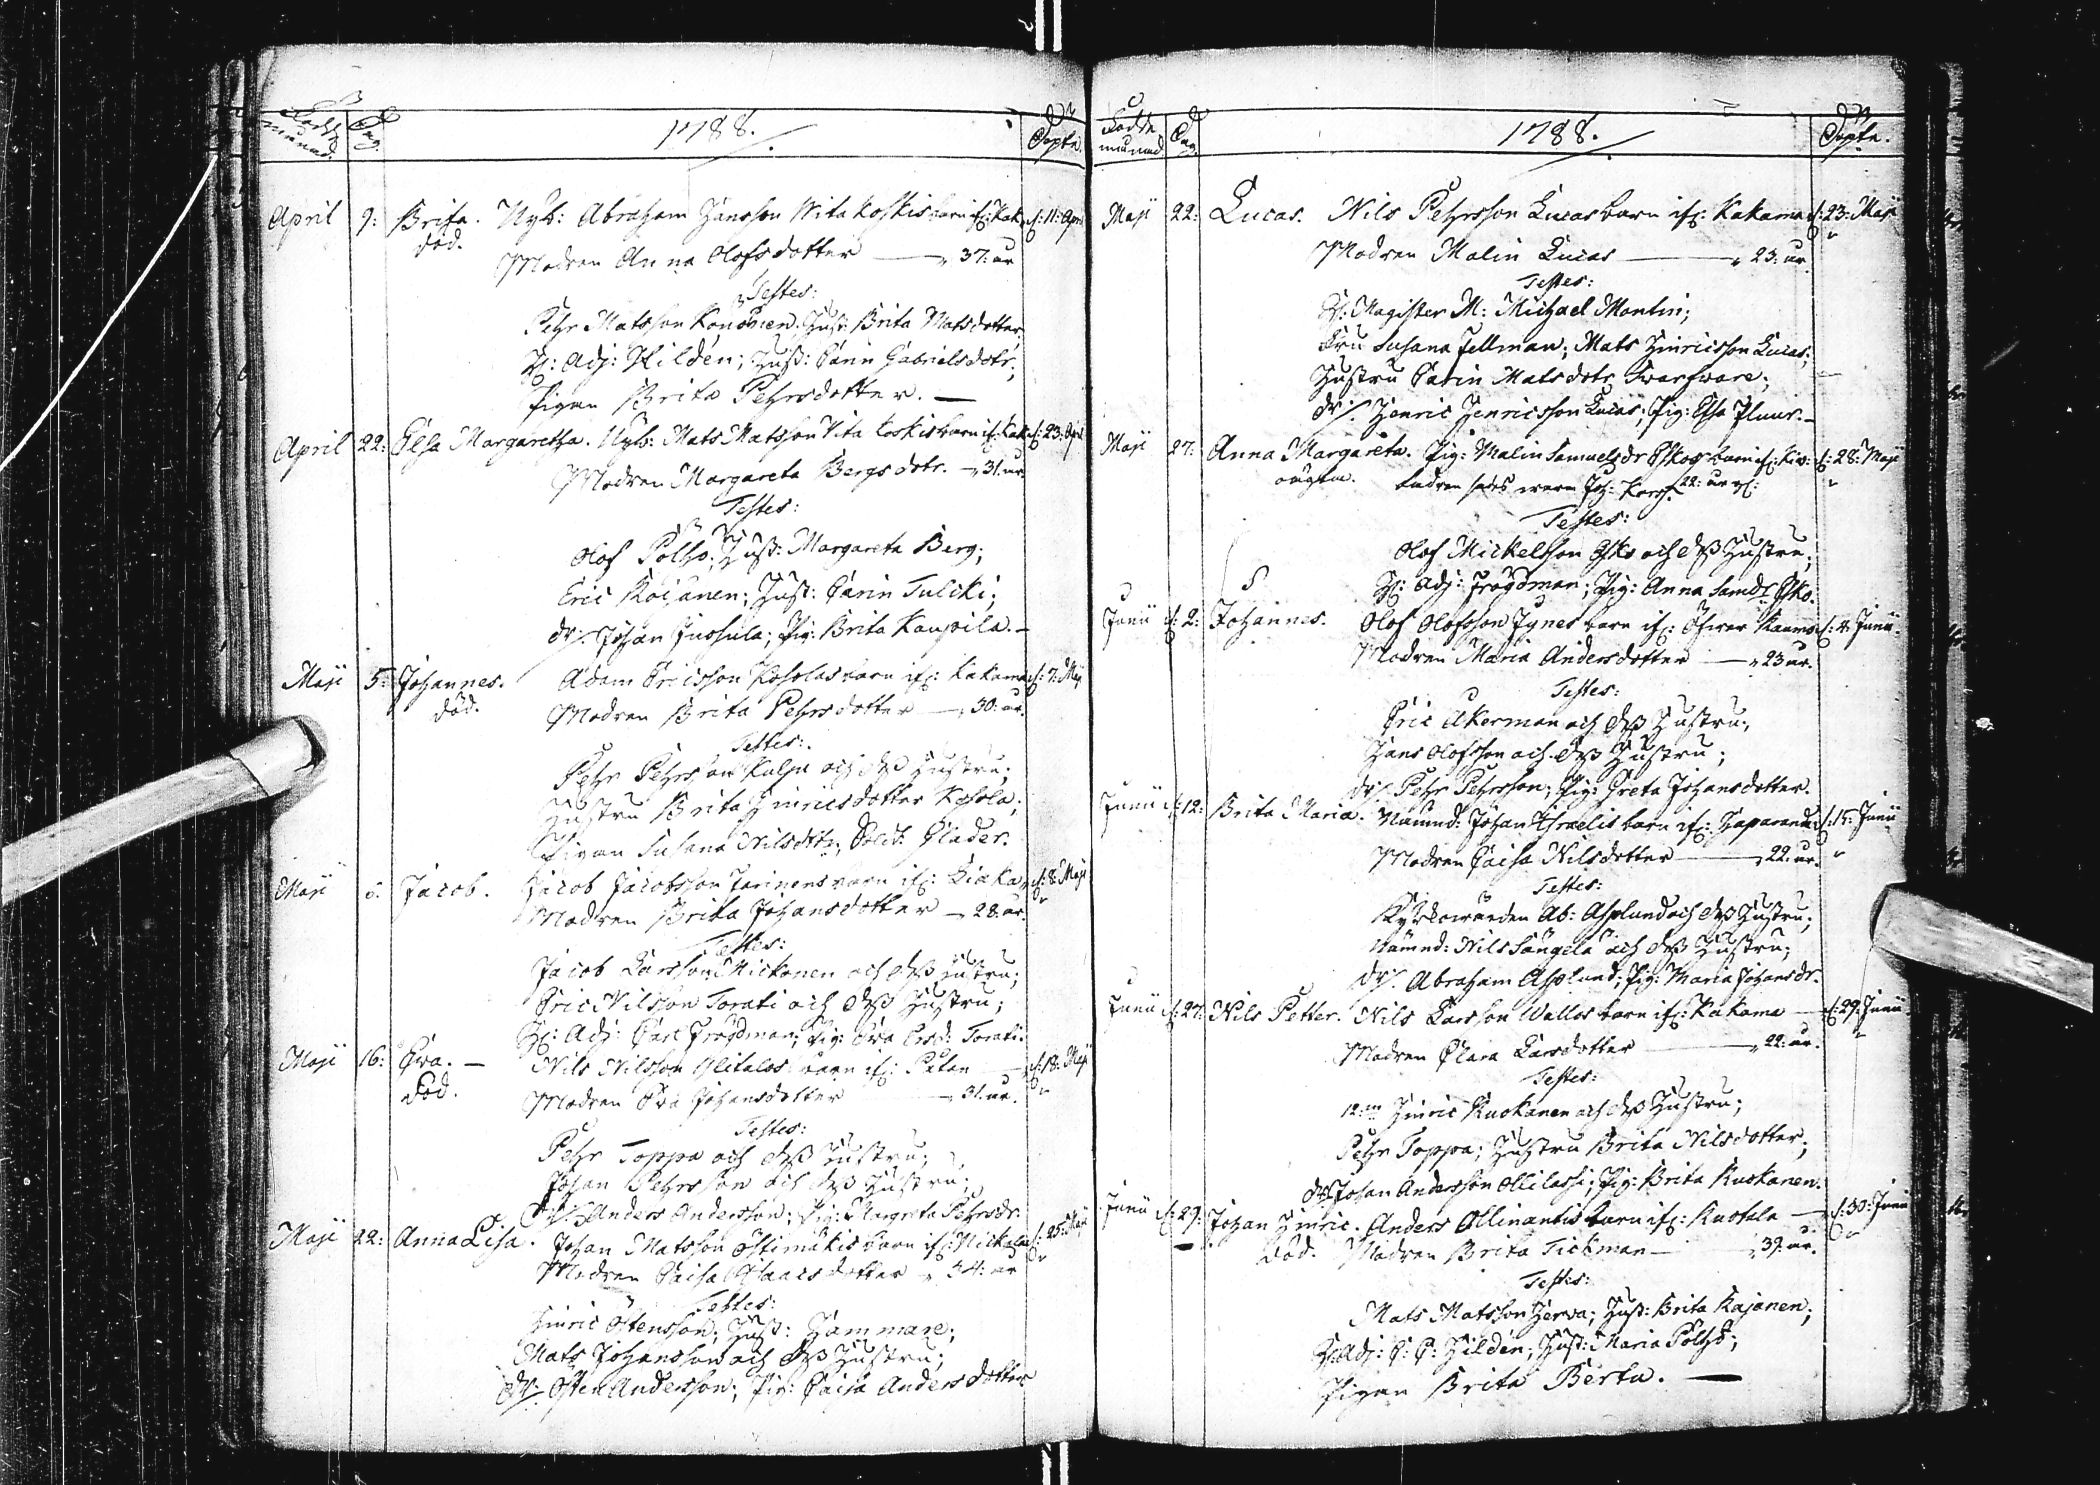 Födde månad. Dag. 1788. Döpte.
April 9: Brita. Nyb: Abraham Hansson Nitakoskis barn if: Kak. d: 11: Apr
död. Modren Anna Olofsdotter — 37: år
Testes:
Pehr Matsson Konoinen; Hust: Brita Matsdotter;
H: Adj: Hildén; Hust: Carin Gabrielsdotr;
Pigan Brita Pehrsdotter. —
April 22: Elsa Margaretha. Nyb: Mats Matsson Vitakoskis barn if: Kak. d: 23: April
Modren Margareta Bergsdotr. — 31. år
Testes:
Olof Pölhö; Hust: Margareta Berg;
Eric Koisanen; Hust: Carin Tulcki;
Dr. Johan Juohula; Pig: Brita Kaupila. —
Maji 5: Johannes. Adam Ericsson Kosolas barn if: Kakama d: 7: Maj
död. Modren Brita Pehrsdotter — 30: år.
Testes:
Pehr Pehrsson Kulju och dess hustru;
Hustru Brita Hinricsdotter Kosola;
Pigan Susana Nilsdotr; Sold: Glader.
Maji 6: Jacob. Jacob Jacobsson Tarinens barn if: Liaka d: 8: Maji
Modren Brita Johansdotter — 28: år.
Testes:
Jacob Larsson Mickonen och dess hustru;
Eric Nilsson Torati och dess hustru;
H: Adj: Carl Frögdman; Pig: Eva Ersd: Torati.
Maji 16: Eva. — Nils Nilssson Ylitalos barn if: Päkan — d: 18: Maji
död. Modren Eva Johansdotter — 31. år.
Testes:
Pehr Toppa och dess hustru;
Johan Pehrsson och dess hustru;
Dr. Anders Andersson; Pig: Margreta Pehrsdr:
Maji 22: Anna Lisa. Johan Matsson Östimäkis barn if: Nickala d: 25: Maji
Modren Caisa Isaacsdotter — 34: år
Testes:
Hinric Östensson; Hust: Hammare;
Mats Johansson och dess hustru;
Dr. Östen Andersson; Pig: Caisa Andersdotter
Födde månad Dag. 1788. Döpte.
Maji 22: Lucas. Nils Pehrsson Lucas barn if: Kakama d: 23: Maji
Modren Malin Lucas — 23: år.
Testes:
H: Magister M: Michael Montin;
Fru Susana Fellman; Mats Hinricsson Lucas;
Hustru Carin Matsdotr Swarfware;
Dr. Henric Henricsson Lucas; Pig: Elsa Pluur. —
Maji 27: Anna Margareta. Pig: Malin Samuelsdr Esko barn if: Kiv: d: 28: Maji
oägta. fadren sades wara Joh: Korp. 22: år gl:
Testes:
Olof Mickelsson Esko och dess hustru;
H: Adj: Frögdman; Pig: Anna Samdr Esko.
Junii d: 2: Johannes. Olof Olofsson Jynes barn if: Öfwer Kaumo d: 4: Junii
Modren Maria Andersdotter — 23 år.
Testes:
Eric Åkerman och dess hustru;
Hans Olofsson och dess hustru;
Dr. Pehr Pehrsson; Pig: Greta Johansdotter.
Junii d: 12: Brita Maria. Nämnd: Johan Israelis barn if: Haparanda d: 15: Junii
Modren Caisa Nilsdotter — 22: år.
Testes:
Kyrkowärden Ab: Asplund och dess hustru;
Nämnd: Nils Sångela och dess hustru;
Dr. Abraham Asplund; Pig: Maria Johansdr.
Junii d: 27: Nils Petter. Nils Larsson Wallos barn if: Kakama — d: 29: Junii
Modren Clara Larsdotter — 22: år.
Testes:
12:m Hinric Ruokanen och dess hustru;
Pehr Toppa; Hustru Brita Nilsdotter;
Dr. Johan Andersson Ollilassi; Pig: Brita Ruokanen.
Junii d: 29: Johan Hinric. Anders Ollinantis barn if: Ruotala — d: 30: Junii
död. Modren Brita Tickman — 39: år.
Testes:
Mats Matsson Herva; Hust: Brita Kajanen;
H: Adj: C: P: Hildén; Hust: Maria Pölhö;
Pigan Brita Berta. —